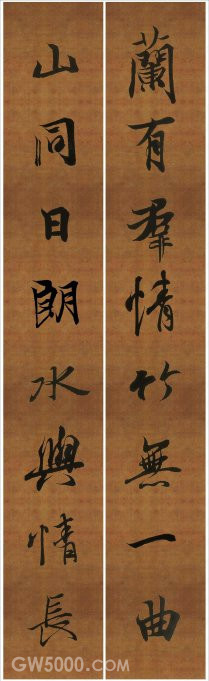 蘭有羣情竹無一曲
山同日朗水與情長
GW5000.COM